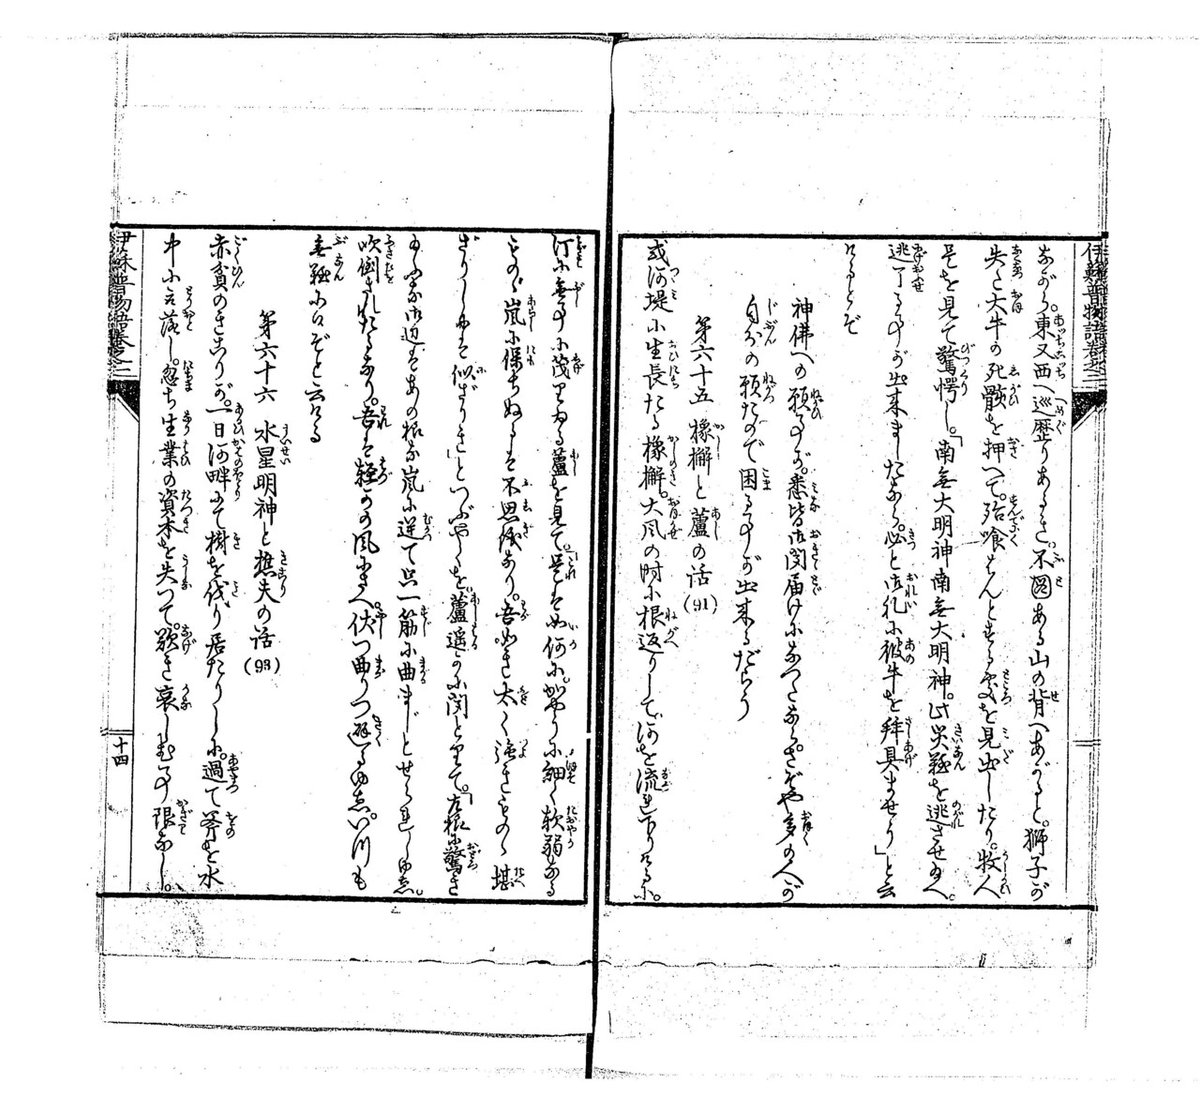 伊蘇普物語卷之二
ながら。東又西へ巡歴りあるき。不圖ある山の背へあがると。獅子が
失た大牛の死骸を押へて。殆喰はんとする處を見出したり。牧人
是を見て驚愕し。「南無大明神南無大明神。此災難を逃させ玉へ。
逃了る事が出來ましたなら。必と御礼に彼牛を拜具ませり」と云
けるとぞ
神佛への願事が。悉皆御聞届けになつたなら。さぞや多の人が
自分の願たので困る事が出來るだらう
第六十五 橡檞と蘆の話 (91)
或河堤に生長たる橡檞。大風の時に根返りして河を流れ下りけるに。
汀に無事に茂りゐる蘆を見て是は如何に。かやうに細く軟弱なる
ものゝ嵐に保ちぬるは不思議なり。吾如き太く強きものゝ堪
ざりしには似ざりき」とつぶやくを蘆遙かに聞とりて。「左樣に驚き
玉ふな御辺はあの樣な嵐に逆て只一筋に曲まじとせられしゆゑ。
吹倒されたるなり。吾は輕かの風にさへ。伏つ曲りつ避るゆゑ。いつも
無難にはぞと云ける
第六十六 水星明神と樵夫の話 (93)
赤貧のきこりが。一日河畔にて樹を伐り居たりしに。過て斧を水
中に取落し。忽ち生業の資本を失つて。歎き哀しむ事限なし。
伊蘇普物語卷之二
十四